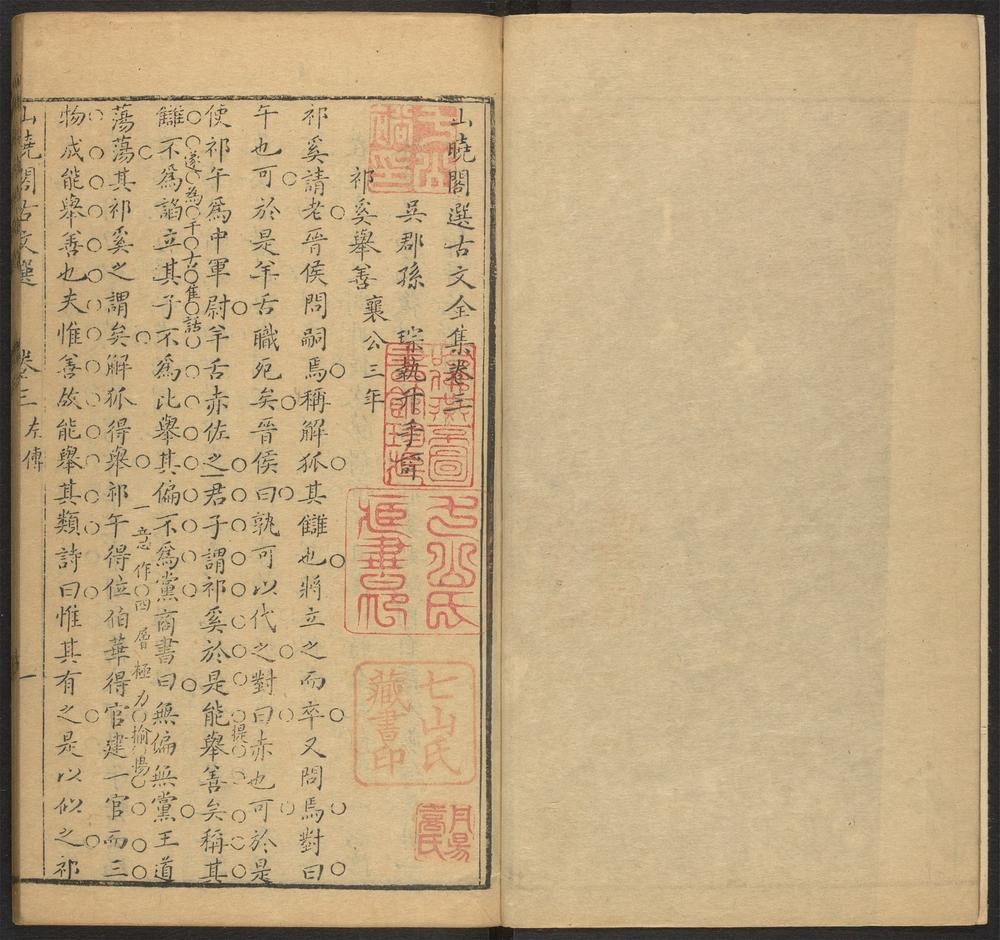 山曉閣選古文全集卷三
吳郡孫 琮執升手評
祁奚舉善 襄公三年
祁奚請老晉侯問嗣焉稱解狐其讎也將立之而卒又問焉對曰
午也可於是羊舌職死矣晉侯曰孰可以代之對曰赤也可於是
使祁午爲中軍尉羊舌赤佐之君子謂祁奚於是能舉善矣稱其
提
遂爲千古隹話
讎不爲諂立其子不爲比舉其偏不爲黨商書曰無偏無黨王道
一意作四層極力揄揚
蕩蕩其祁奚之謂矣解狐得舉祁午得位伯華得官建一官而三
物成能舉善也夫惟善故能舉其類詩曰惟其有之是以似之祁
山曉閣古文選 卷三 左傳 一
七山氏藏書印
七山氏藏書印